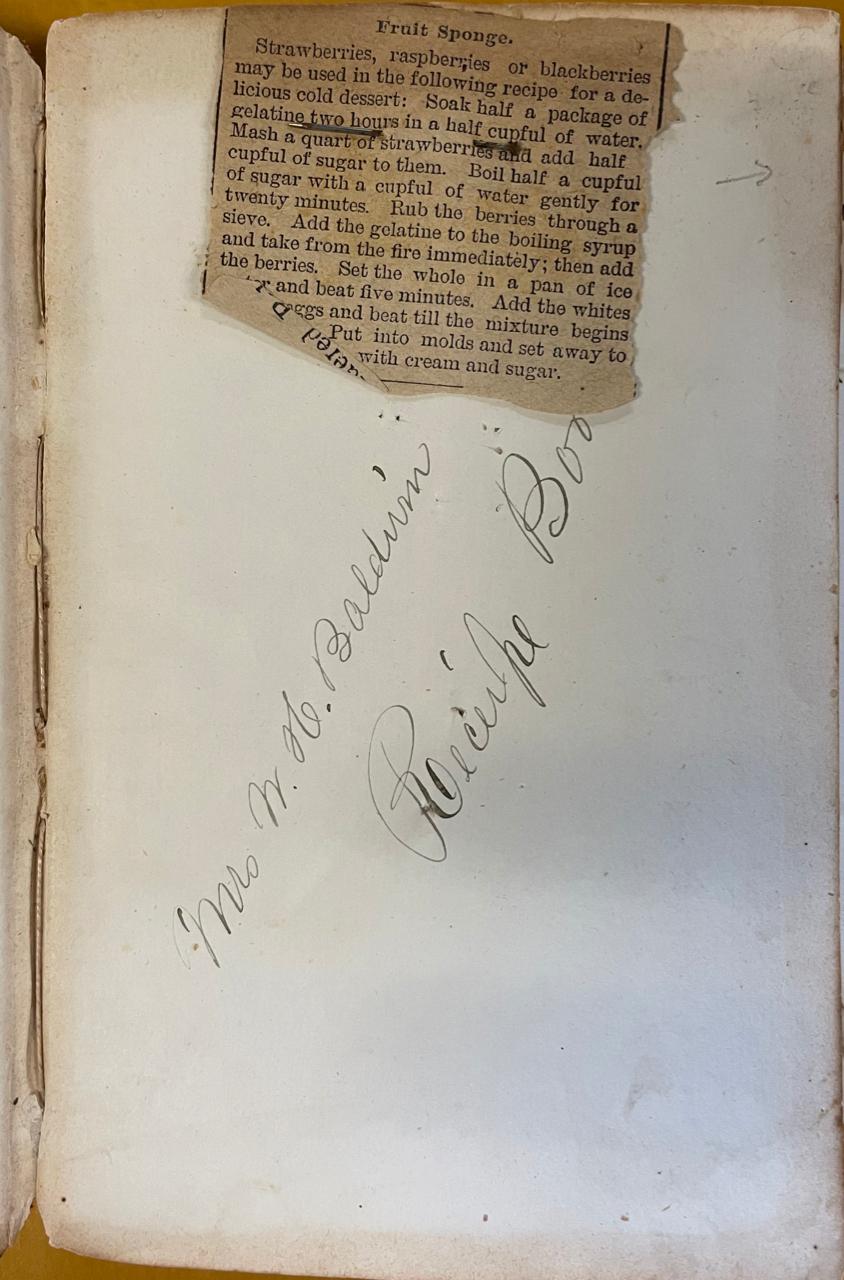 Fruit Sponge.
Strawberries, raspberries or blackberries
may be used in the following recipe for a de-
licious cold dessert: Soak half a package of
gelatine two hours in a half cupful of water.
Mash a quart of strawberries and add half
cupful of sugar to them. Boil half a cupful
of sugar with a cupful of water gently for
twenty minutes. Rub the berries through a
sieve. Add the gelatine to the boiling syrup
and take from the fire immediately; then add
the berries. Set the whole in a pan of ice
and beat five minutes. Add the whites
eggs and beat till the mixture begins
Put into molds and set away to
with cream and sugar.
Mrs W. H. Baldwin
Receipe Boo